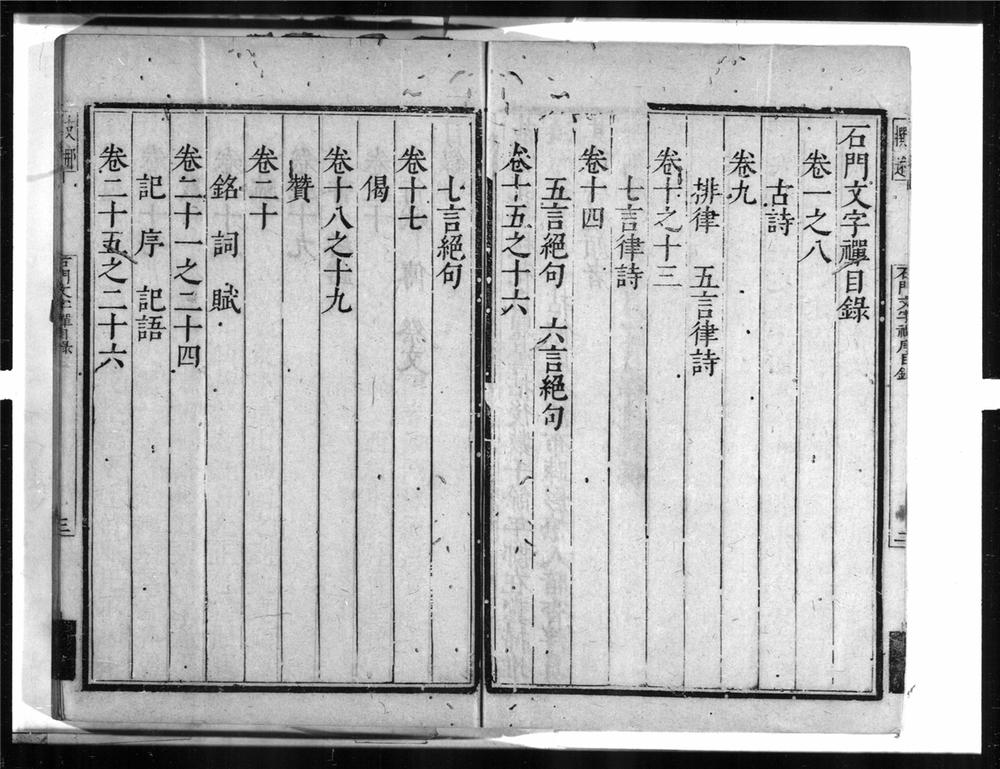 石門文字禪目錄
卷一之八
古詩
卷九
排律　五言律詩
卷十之十三
七言律詩
卷十四
五言絕句　六言絕句
卷十五之十六
七言絕句
卷十七
偈
卷十八之十九
贊
卷二十
銘　詞　賦
卷二十一之二十四
記　序　記語
卷二十五之二十六
石門文字禪目錄
三